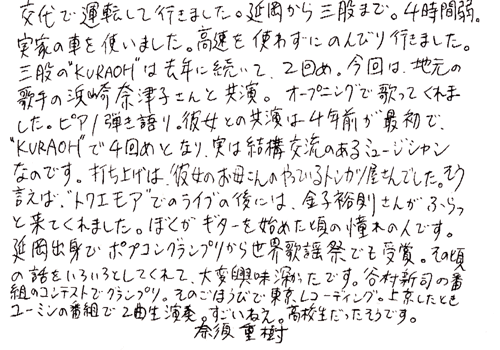 交代で運転して行きました。延岡から三股まで。4時間弱。
実家の車を使いました。高速を使わずにのんびり行きました。
三股の"KURAOH"は去年に続いて、2回め。今回は、地元の
歌手の浜崎奈津子さんと共演。オープニングで歌ってくれま
した。ピアノ弾き語り。彼女との共演は4年前が最初で、
"KURAOH"で4回めとなり、実は結構交流のあるミュージシャン
なのです。打ち上げは、彼女のお母さんのやっているトンカツ屋さんでした。そう
言えば、"トワエモア"でのライブの後には、金子裕則さんが、ふらっ
と来てくれました。ぼくがギターを始めた頃の憧れの人です。
延岡出身でポプコングランプリから世界歌謡祭でも受賞。その頃
の話をいろいろとしてくれて、大変興味深かったです。谷村新司の番
組のコンテストでグランプリ。そのごほうびで東京、レコーディング。上京したとき
ユーミンの番組で2曲生演奏。すごいねえ。高校生だったそうです。
奈須重樹